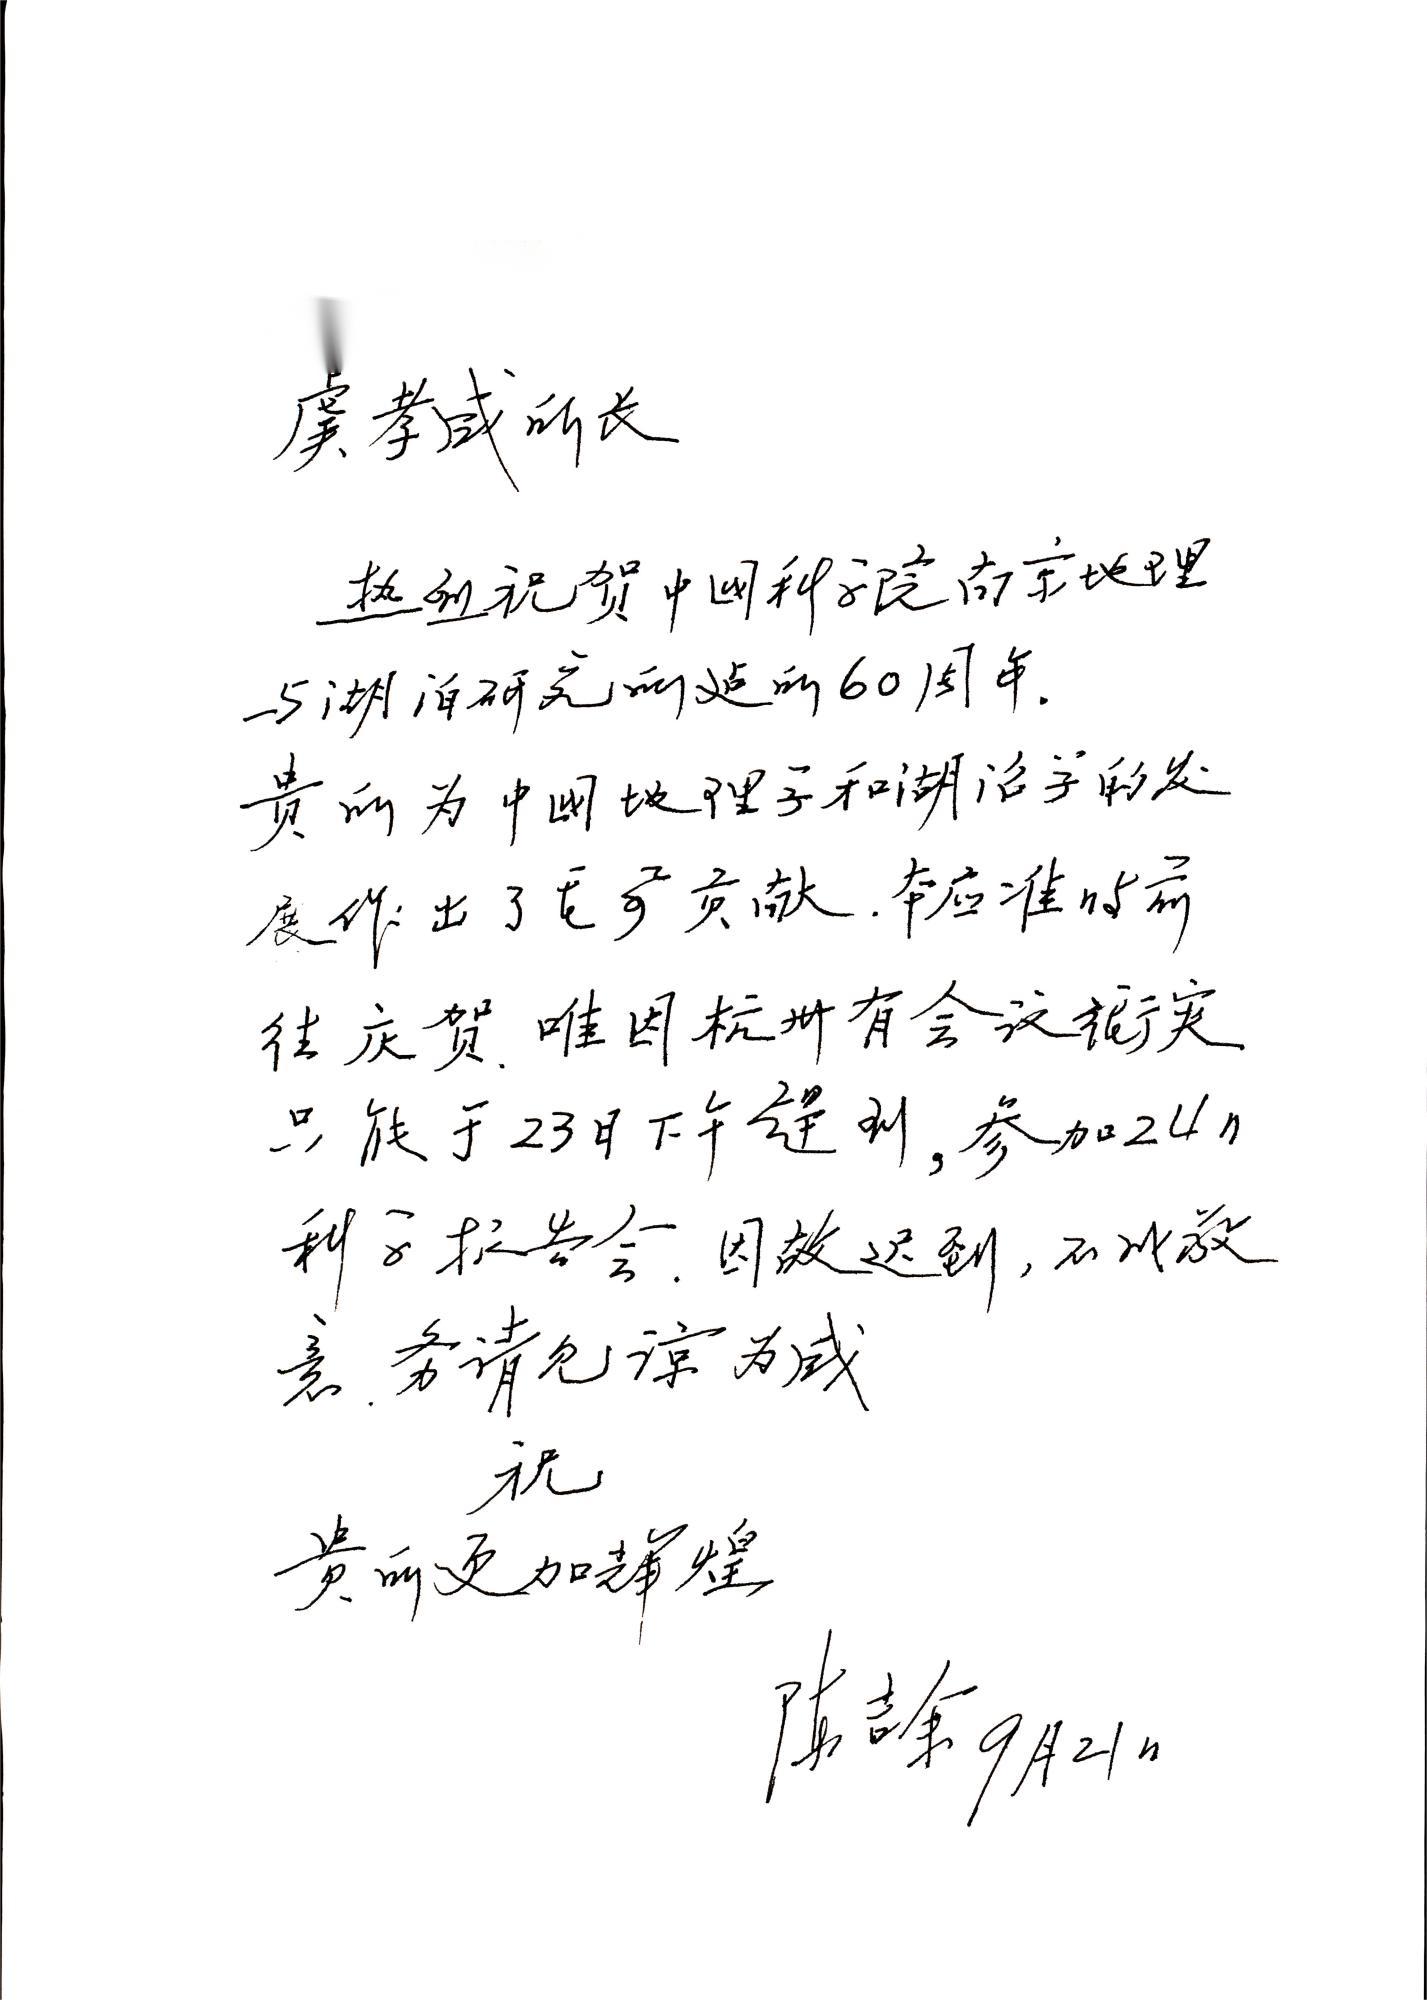 虞孝感所长
热烈祝贺中国科学院南京地理
与湖泊研究所建所60周年.
贵所为中国地理学和湖沼学的发
展作出了重要贡献.本应准时前
往庆贺.唯因杭州有会议衝突
只能于23日下午赶到,参加24日
科学报告会.因故迟到,不成敬
意.务请见谅为感
祝
贵所更加辉煌
陈吉余9月21日